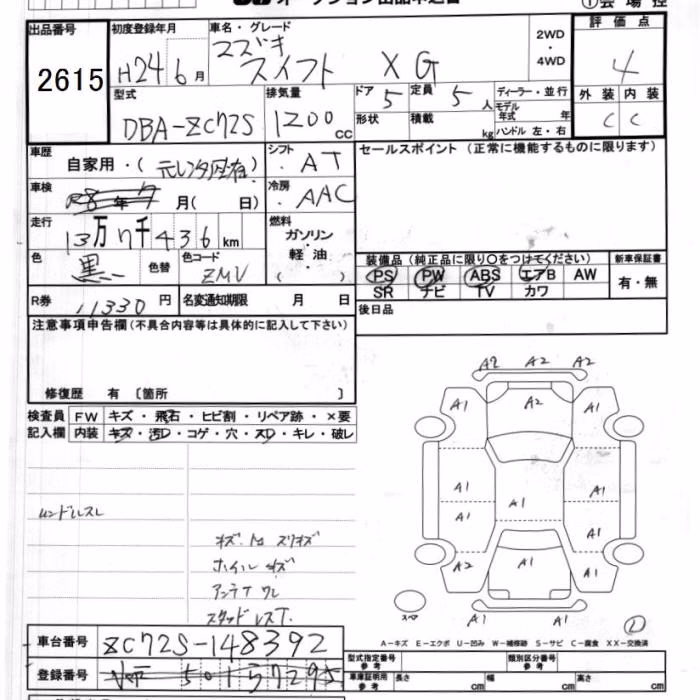 出品番号
2615
初度登録年月
H24 6月
車名・グレード
スズキ
スイフト XG
2WD
・
4WD
評価点
4
外装 内装
C C
型式
DBA-ZC72S
排気量
1200 cc
ドア
5
定員
5 人
形状
積載
kg
ディーラー・並行
モデル
年式 年
ハンドル 左・右
車歴
自家用・(
シフト
AT
セールスポイント (正常に機能するものに限ります)
車検
R8年7月( 日)
冷房
AAC
走行
13万7千436km
燃料
ガソリン
・
軽油
( )
色
黒
色替
色コード
ZMV
装備品 (純正品に限り○をつけてください)
PS PW ABS エアB AW
SR ナビ TV カワ
新車保証書
有・無
R券
11330円
名変通知期限 月 日
後日品
注意事項申告欄(不具合内容等は具体的に記入して下さい)
修復歴 有 〔箇所 〕
検査員
記入欄
FW キズ・飛石・ヒビ割・リペア跡・×要
内装 キズ・汚レ・コゲ・穴・スレ・キレ・破レ
ハンドルスレ
キズ. スリキズ
ホイルキズ
アンテナワレ
A2 A2 A2
A1 A2 A1
A1 A1
A1 A1 A1
A2 A1 A1
A1 A1
スペア
A-キズ E-エクボ U-凹み W-補修跡 S-サビ C-腐食 XX-交換済
車台番号
ZC72S-148392
登録番号
501
57295
型式指定番号
参考
類別区分番号
参考
車庫証明
参考
長さ cm 幅 cm 高さ cm